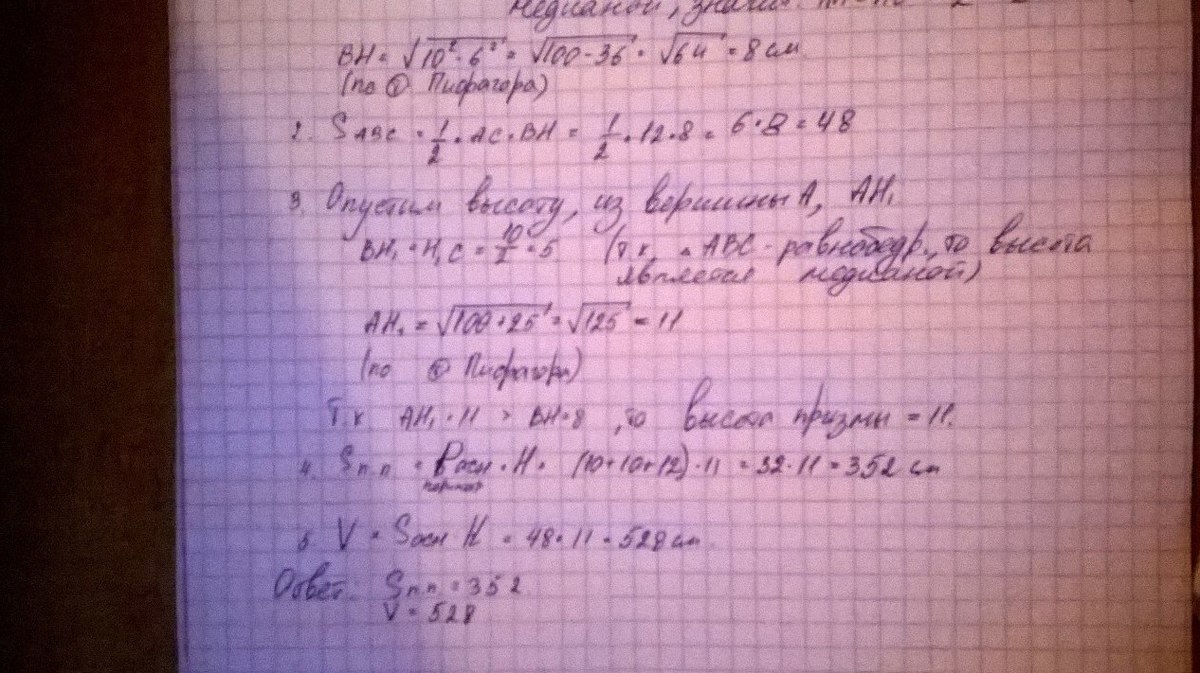 медианой, значит
BH = √10² - 6² = √100 - 36 = √64 = 8 см.
(по Ⓣ Пифагора)
2. S ABC = 1/2 · AC · BH = 1/2 · 12 · 8 = 6 · 8 = 48
3. Опустим высоту, из вершины A, AH₁
BH₁ = H₁C = 10/2 = 5 (т.к. △ABC - равнобедр., то высота
является медианой)
AH₁ = √100 + 25 = √125 = 11
(по Ⓣ Пифагора)
Т.к AH₁ = 11 > BH = 8, то высота призмы = 11.
4. Sп.п = Pосн · H = (10+10+12) · 11 = 32 · 11 = 352 см
5. V = Sосн H = 48 · 11 = 528 см.
Ответ: Sп.п = 352
V = 528